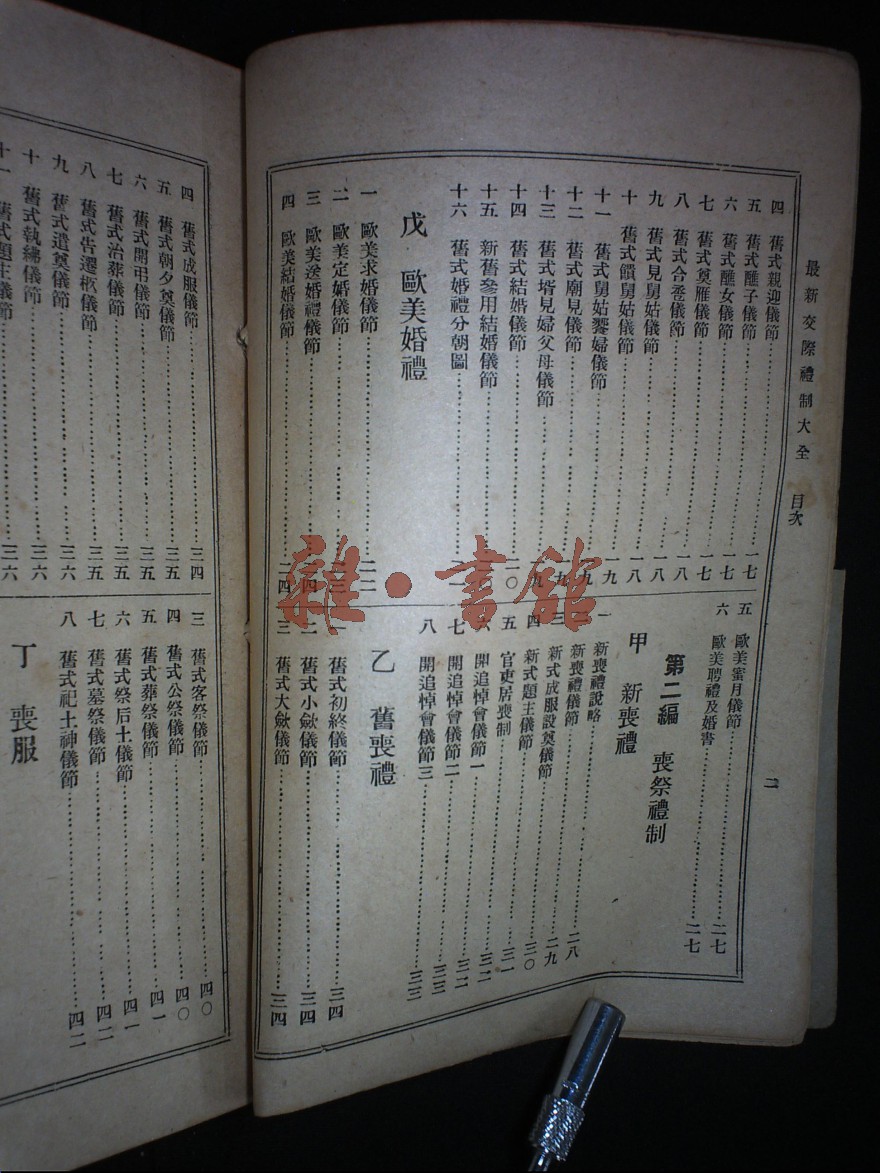 最新交際禮制大全 目次
二
四 舊式親迎儀節 一七
五 舊式醮子儀節 一七
六 舊式醮女儀節 一七
七 舊式奠雁儀節 一七
八 舊式合卺儀節 一八
九 舊式見舅姑儀節 一八
十 舊式饋舅姑儀節 一八
十一 舊式舅姑饗婦儀節 一九
十二 舊式廟見儀節 一九
十三 舊式壻見婦父母儀節 一九
十四 舊式結婚儀節
十五 新舊參用結婚儀節
十六 舊式婚禮分朝圖
戊 歐美婚禮
一 歐美求婚儀節 二二
二 歐美定婚儀節
三 歐美送婚禮儀節
四 歐美結婚儀節 二四
五 歐美蜜月儀節 二七
六 歐美聘禮及婚書 二七
第二編 喪祭禮制
甲 新喪禮
一 新喪禮說略
新喪禮儀節 二八
三 新式成服設奠儀節 二九
四 新式題主儀節 三〇
五 官吏居喪制 三一
六 開追悼會儀節一 三二
七 開追悼會儀節二 三二
八 開追悼會儀節三 三三
乙 舊喪禮
一 舊式初終儀節 三四
二 舊式小斂儀節 三四
三 舊式大斂儀節 三四
四 舊式成服儀節 三四
五 舊式朝夕奠儀節 三五
六 舊式開弔儀節 三五
七 舊式治葬儀節 三五
八 舊式告遷柩儀節 三五
九 舊式遣奠儀節 三六
十 舊式執紼儀節 三六
十一 舊式題主儀節 三六
三 舊式客祭儀節 四〇
四 舊式公祭儀節 四〇
五 舊式葬祭儀節 四一
六 舊式祭后土儀節 四一
七 舊式墓祭儀節 四二
八 舊式祀土神儀節 四二
丁 喪服
雜·書館